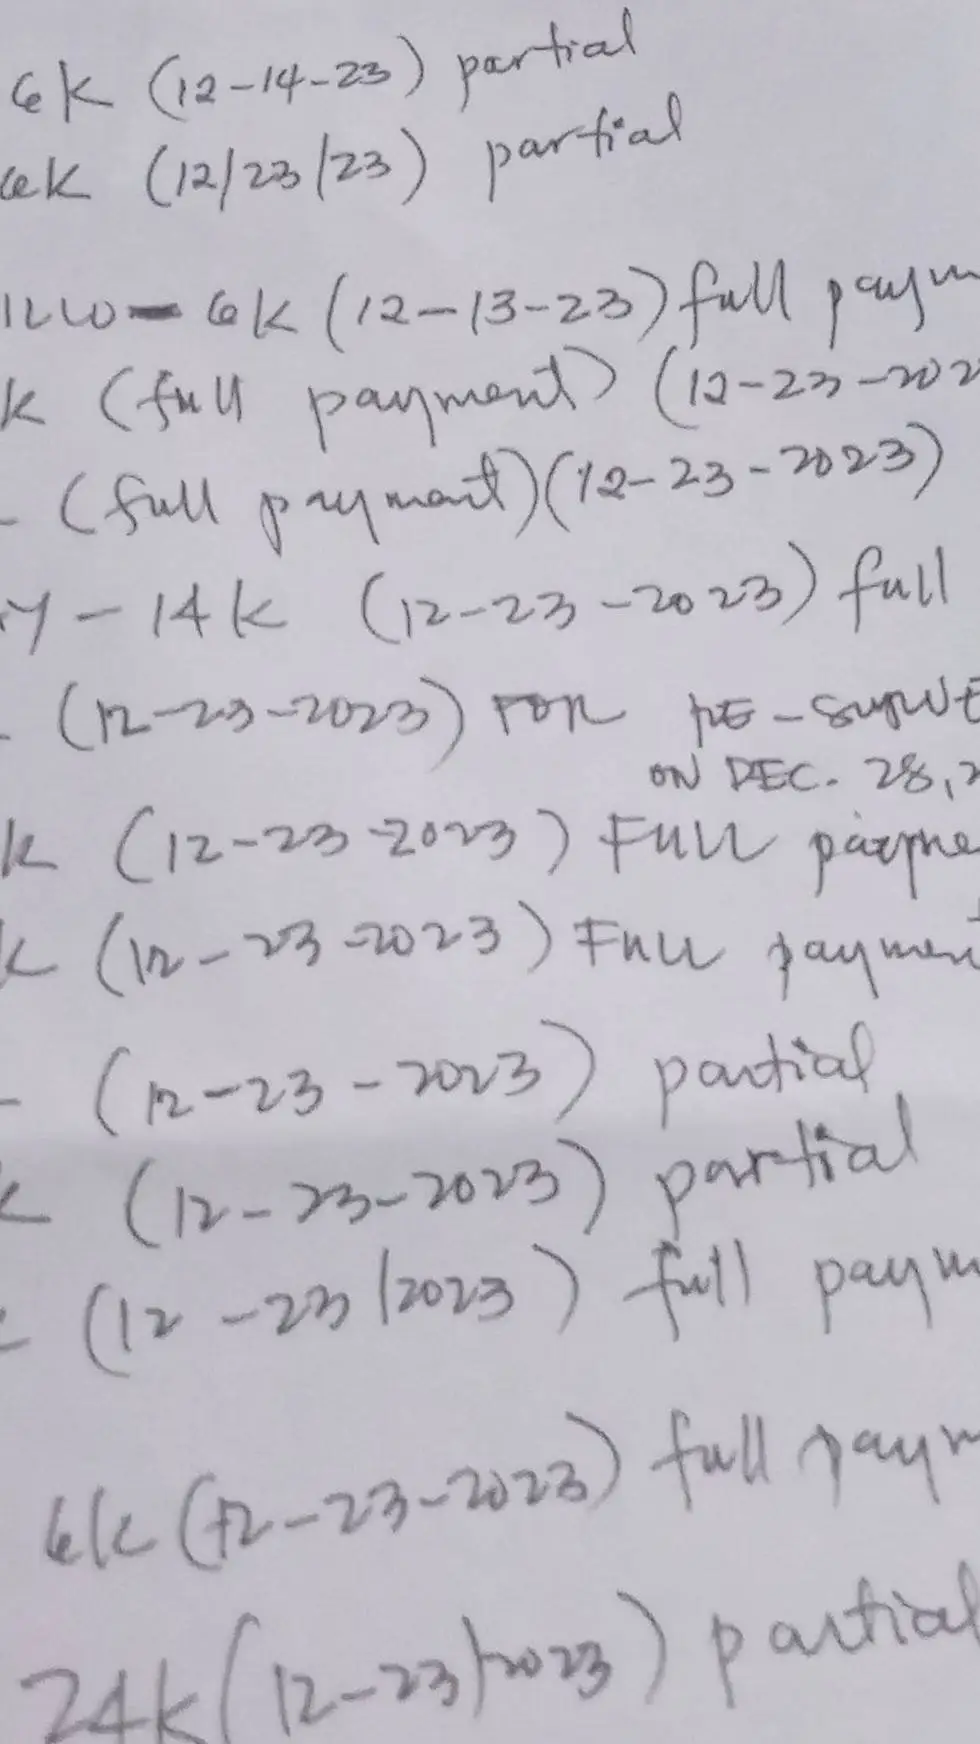 6k (12-14-23) partial
6k (12/23/23) partial
ILLO - 6k (12-13-23) full paym
k (full payment) (12-23-202
- (full payment) (12-23-2023)
y - 14k (12-23-2023) full
- (12-23-2023) FOR RE-SURVE
ON DEC. 28, 2
k (12-23-2023) FULL payme
k (12-23-2023) FULL payment
- (12-23-2023) partial
k (12-23-2023) partial
(12-23/2023) full paym
6k (12-23-2023) full paym
24k (12-23/2023) partial